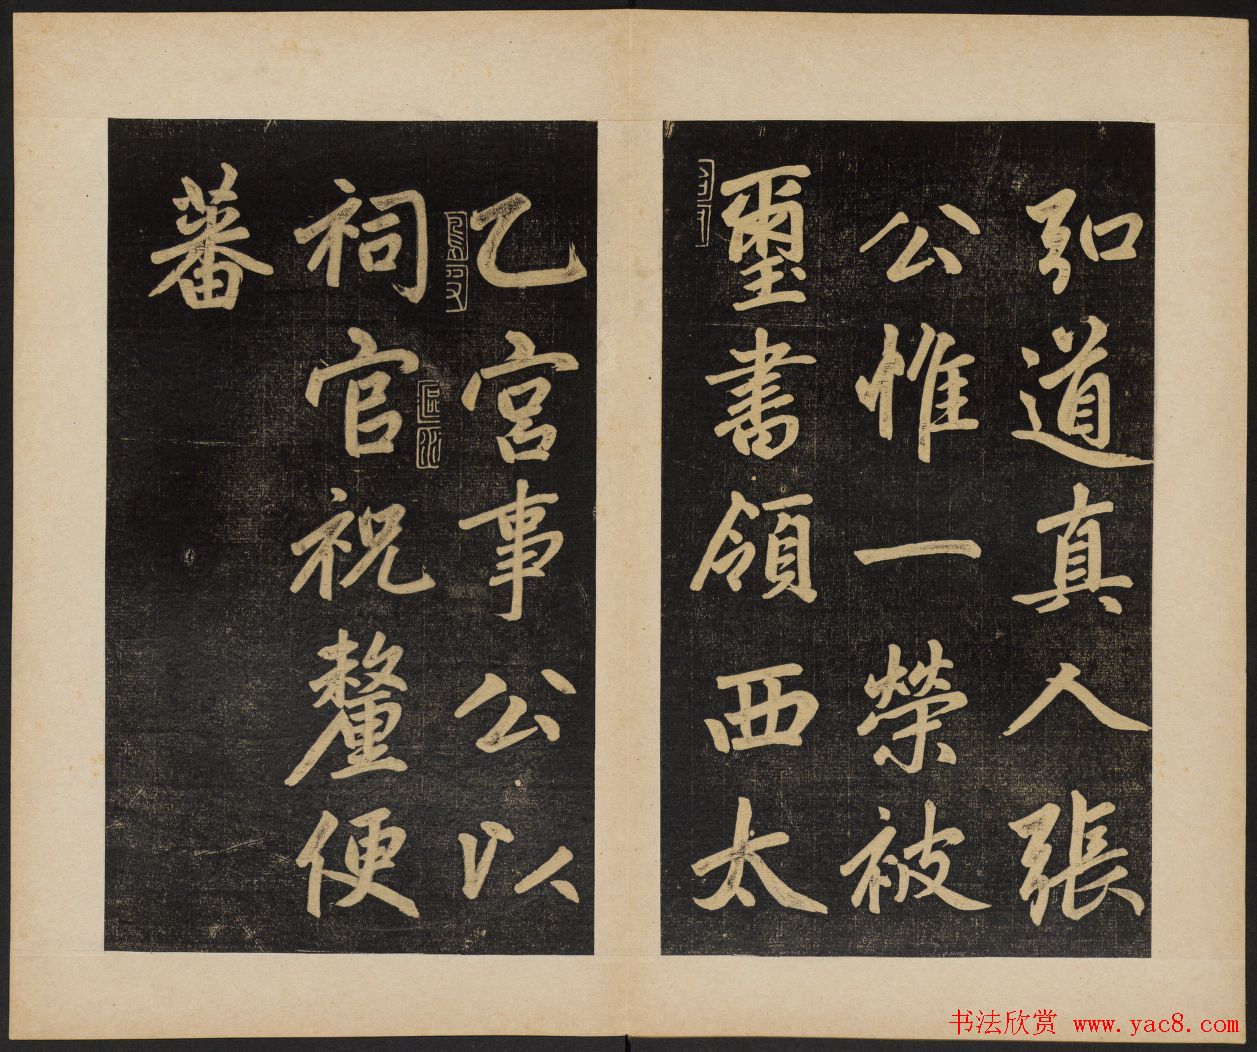 弘道真人張
公惟一榮被
璽書領西太
乙宮事公以
祠官祝釐便
蕃
书法欣赏 www.yac8.com